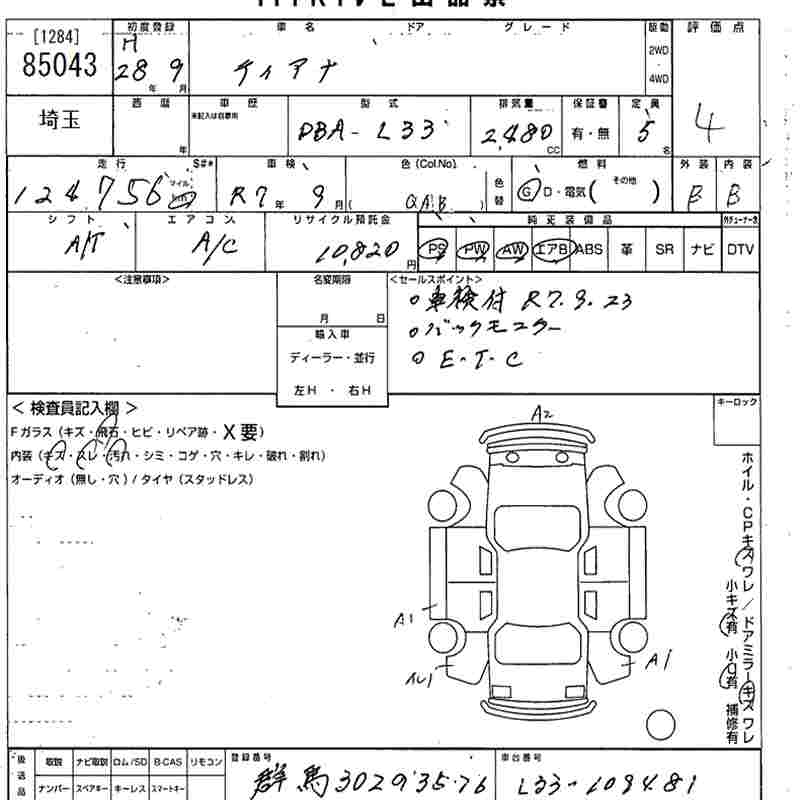 [1284]
85043
初度登録
H
28 年 9 月
車名
ドア
グレード
ティアナ
駆動
2WD
・
4WD
評価点
4
埼玉
西暦
年
車歴
※記入は自家用
型式
DBA-L33
排気量
2,480 CC
保証書
有・無
定員
5 名
走行
124,756
マイル
km
S##
車検
R7 年 9 月
色(Col.No)
(QAB)
色替
燃料
G・D・電気(その他)
外装
B
内装
B
シフト
A/T
エアコン
A/C
リサイクル預託金
10,820 円
純正装備品
PS PW AW エアB ABS 革 SR ナビ DTV
<注意事項>
名変期限
月 日
輸入車
ディーラー・並行
左H ・ 右H
<セールスポイント>
○車検付 R7.9.23
○バックモニター
○E.T.C
<検査員記入欄>
Fガラス(キズ・飛石・ヒビ・リペア跡・X要)
内装(キズ・スレ・汚れ・シミ・コゲ・穴・キレ・破れ・割れ)
オーディオ(無し・穴)/タイヤ(スタッドレス)
キーロック
A2
A1
A1
ホイル・CPキズワレ/ドアミラーキズワレ
小キズ有 小U有 補修有
後送品
取説 ナビ取説 ロム/SD B-CAS リモコン
ナンバー スペアキー キーレス スマートキー
登録番号
群馬302 35-76
車台番号
L33-109481